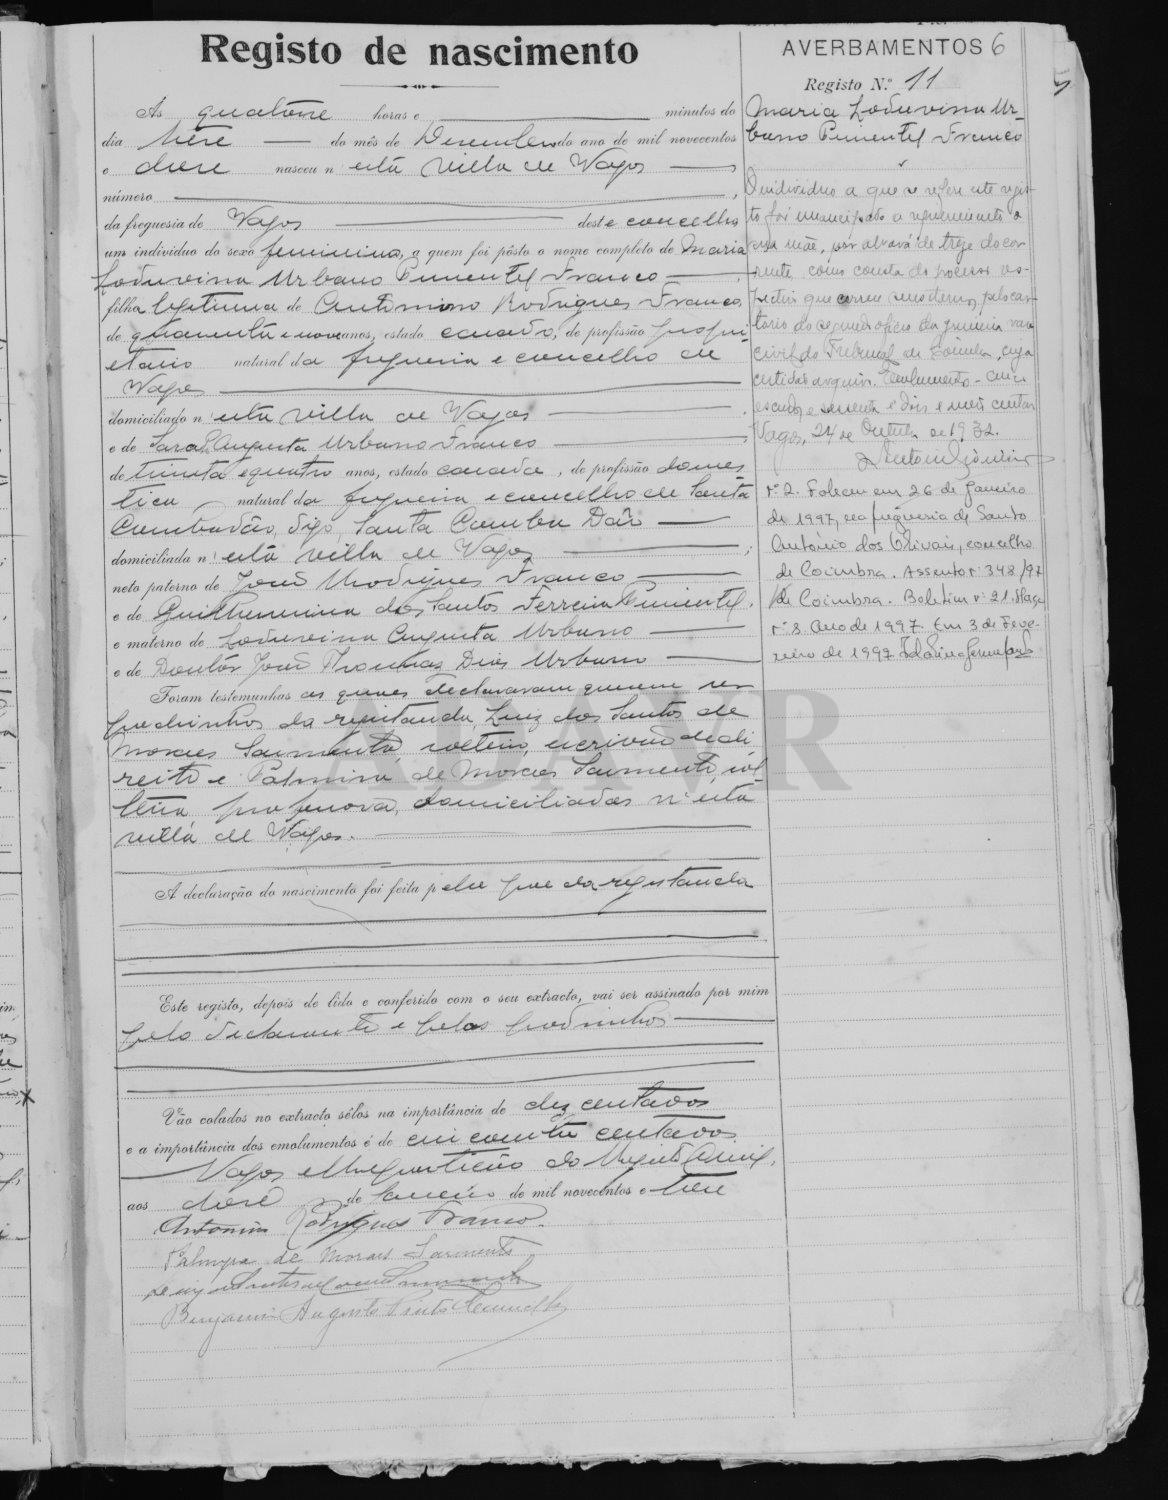 Registo de nascimento
Às quatorze horas e minutos do
dia treze do mês de Dezembro do ano de mil novecentos
e doze nasceu n'esta villa de Vagos
número
da freguesia de Vagos deste concelho
um indivíduo do sexo feminino, a quem foi pôsto o nome completo de Maria
Loduvina Urbano Pimentel Franco
filha legitima de Antonino Rodrigues Franco,
de quarenta e nove anos, estado casado, de profissão propri-
etario natural da freguesia e concelho de
Vagos
domiciliado n'esta villa de Vagos
e de Sara Augusta Urbano Franco
de trinta e quatro anos, estado casada, de profissão domes-
tica natural da freguesia e concelho de Santa
Combadão, digo, Santa Comba Dão
domiciliada n'esta villa de Vagos
neto paterno de José Rodrigues Franco
e de Guilhermina dos Santos Ferreira Pimentel.
e materno de Loduvina Augusta Urbano
e de Doutor José Thomaz Dias Urbano
Foram testemunhas as quaes declararam querem ser
padrinhos da registanda, Luiz dos Santos de
Moraes Sarmento, solteiro, escrivão de di-
reito e Palmira de Moraes Sarmento, sol-
teira, professora, domiciliados n'esta
villa de Vagos.
A declaração do nascimento foi feita pelo pae da registanda
Este registo, depois de lido e conferido com o seu extracto, vai ser assinado por mim
pelo declarante e pelos padrinhos
Vão colados no extracto sêlos na importância de dez centavos
e a importância dos emolumentos é de cincoenta centavos
Vagos e Repartição do Registo Civil,
aos doze de Janeiro de mil novecentos e treze
Antonino Rodrigues Franco.
Palmyra de Moraes Sarmento
Luiz dos Santos de Moraes Sarmento
Benjamin Augusto Pinto
AVERBAMENTOS 6
Registo N.º 11
Maria Loduvina Ur-
bano Pimentel Franco
O individuo a que se refere este regis-
to foi emancipado a requerimento de
sua mãe, por alvará de treze do cor-
rente, como consta do processo res-
pectivo que correu seus termos, pelo car-
torio do segundo oficio da primeira vara
civel do Tribunal de Coimbra, cuja
certidão arquivo. Emolumento - cinco
escudos e sessenta e dois e meio centavos
Vagos, 24 de Outubro de 1932.
nº 2. Faleceu em 26 de Janeiro
de 1997, na freguesia de Santo
António dos Olivais, concelho
de Coimbra. Assento nº 348/97
de Coimbra. Boletim nº 21. Maço
nº 3. Ano de 1997. Em 3 de Feve-
reiro de 1997.
ADAVR